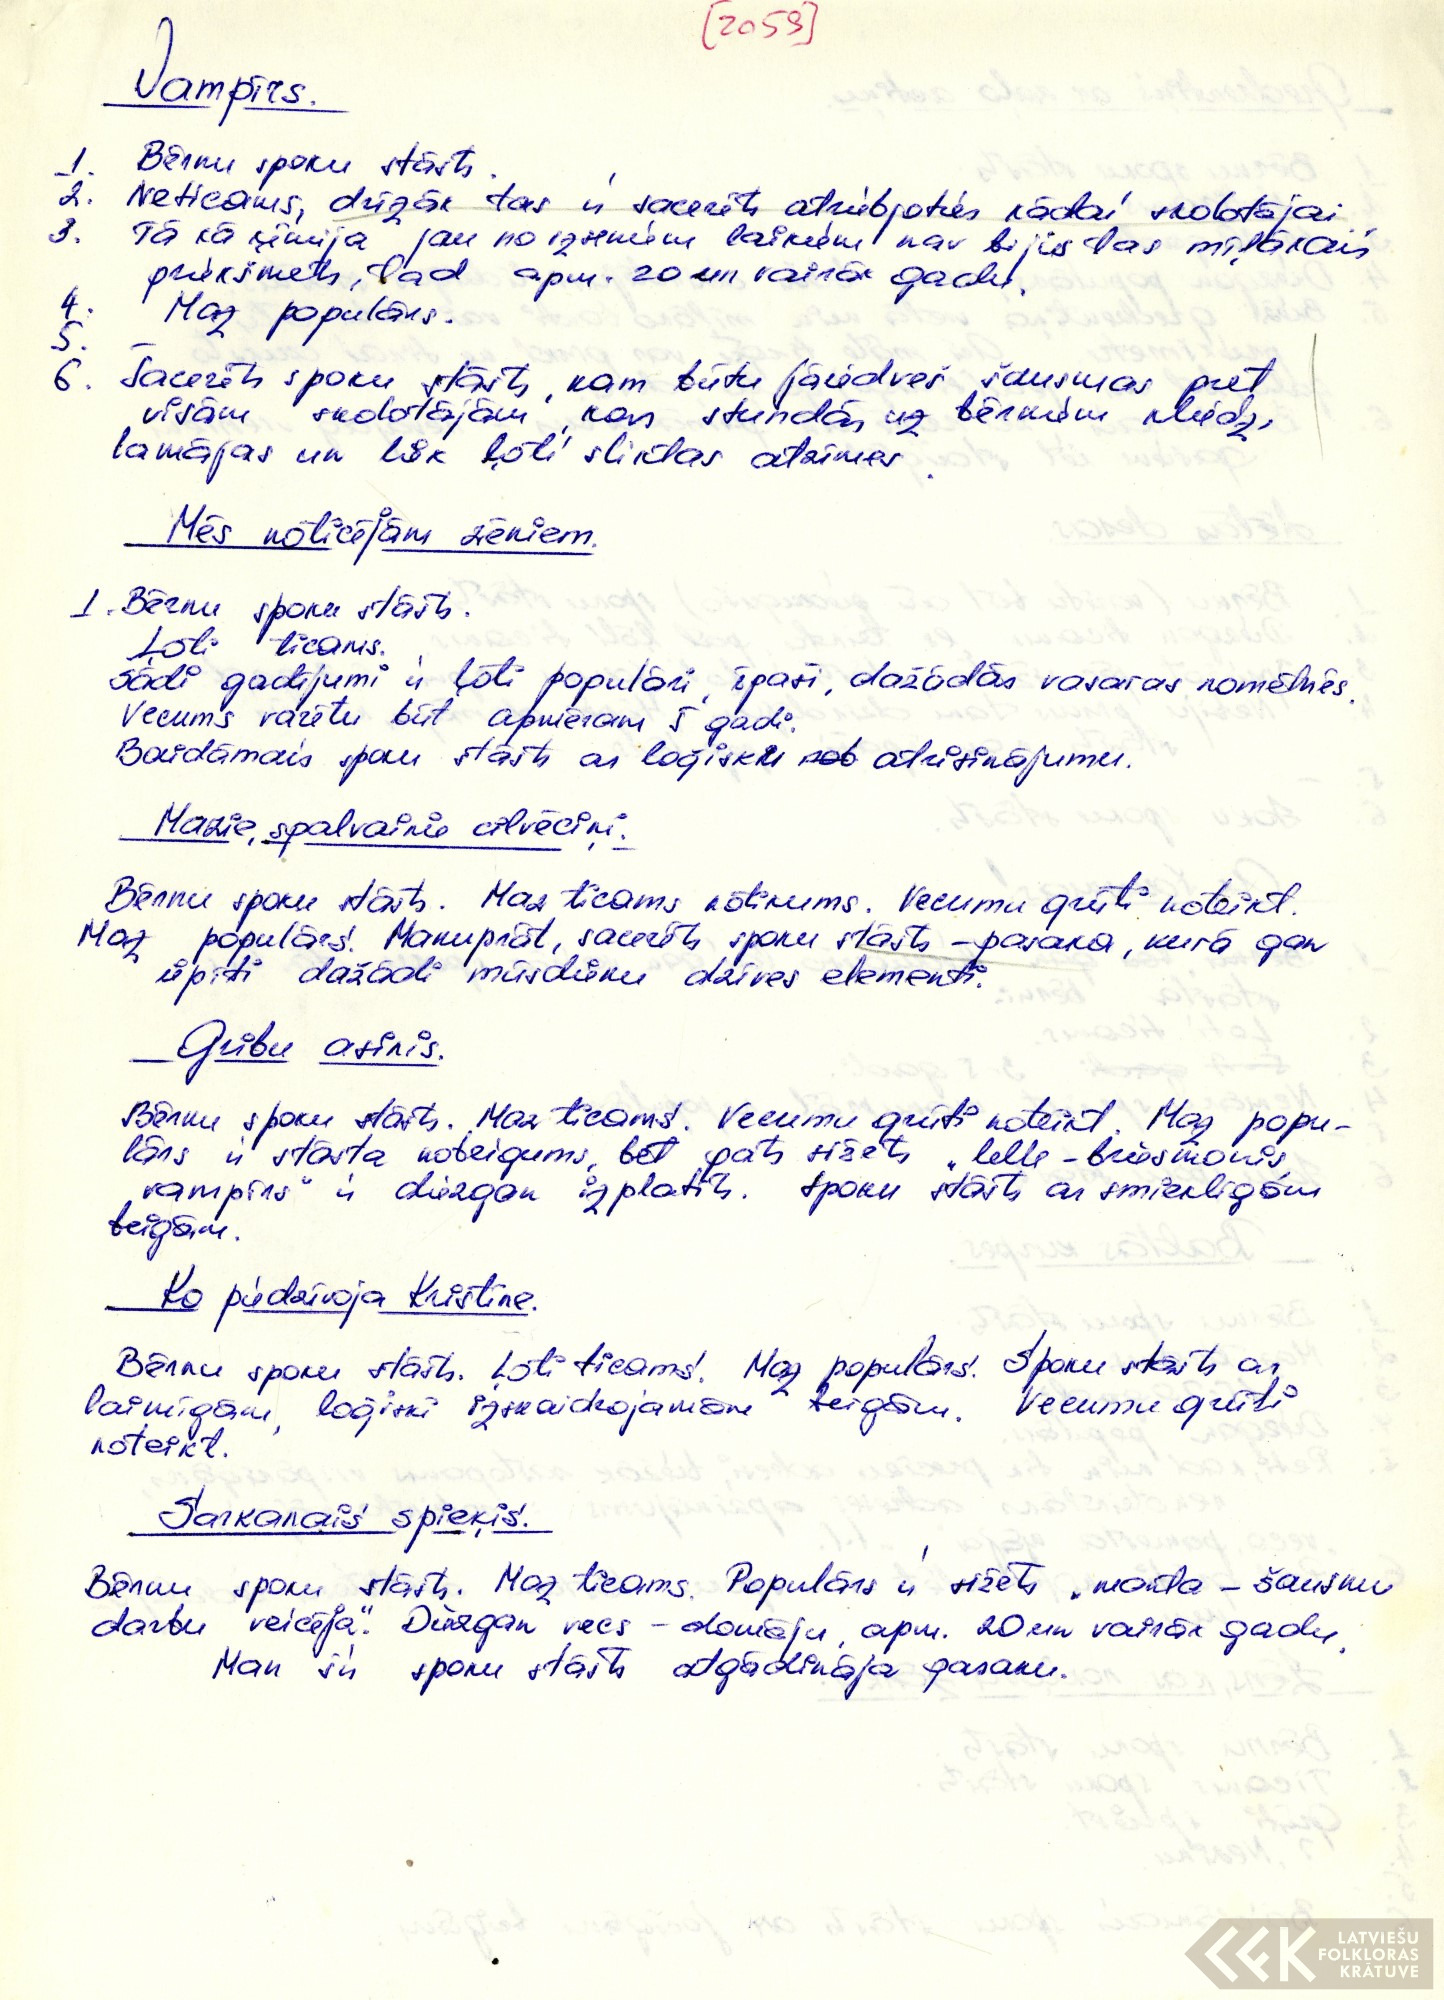 [2059]
Vampīrs.
1. Bērnu spoku stāsts.
2. Neticams, drīzāk tas ir sacerēts atriebjoties kādai skolotājai
3. Tā kā ķīmija jau no izseniem laikiem nav bijis tas mīļākais
priekšmets, tad apm. 20 un vairāk gadu.
4. Maz populārs.
5. –
6. Sacerēts spoku stāsts, kam būtu jāiedveš šausmas pret
visām skolotājām, kas stundās uz bērniem kliedz,
lamājas un liek ļoti sliktas atzīmes.
Mēs noticējām zēniem.
1. Bērnu spoku stāsts.
Ļoti ticams.
Šādi gadījumi ir ļoti populāri, īpaši, dažādās vasaras nometnēs.
Vecums varētu būt apmēram 5 gadi.
Baidāmais spoku stāsts ar loģisku atrisinājumu.
Mazie, spalvainie cilvēciņi.
Bērnu spoku stāsts. Maz ticams notikums. Vecumu grūti noteikt.
Maz populārs. Manuprāt, sacerēts spoku stāsts – pasaka, kurā gan
iepīti dažādi mūsdienu dzīves elementi.
Gribu asinis.
Bērnu spoku stāsts. Maz ticams. Vecumu grūti noteikt. Maz popu-
lārs ir stāsta nobeigums, bet pats sižets „lelle – briesmonis,
vampīrs" ir diezgan izplatīts. Spoku stāsts ar smieklīgām
beigām.
Ko piedzīvoja Kristīne.
Bērnu spoku stāsts. Ļoti ticams. Maz populārs. Spoku stāsts ar
laimīgām, loģiski izskaidrojamām beigām. Vecumu grūti
noteikt.
Sarkanais spieķis.
Bērnu spoku stāsts. Maz ticams. Populārs ir sižets „manta – šausmu
darbu veicēja". Diezgan vecs – domāju, apm. 20 un vairāk gadu.
Man šis spoku stāsts atgādināja pasaku.
LATVIEŠU
FOLKLORAS
KRĀTUVE